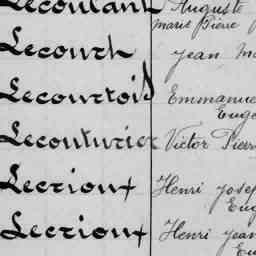 Lecoulant Auguste
Marie Pierre
Lecourh Jean Ma
Lecourtois Emmanue
Euge
Lecouturier Victor Pierr
Lecrioux Henri Josep
Eug
Lecrioux Henri Jean
Eu